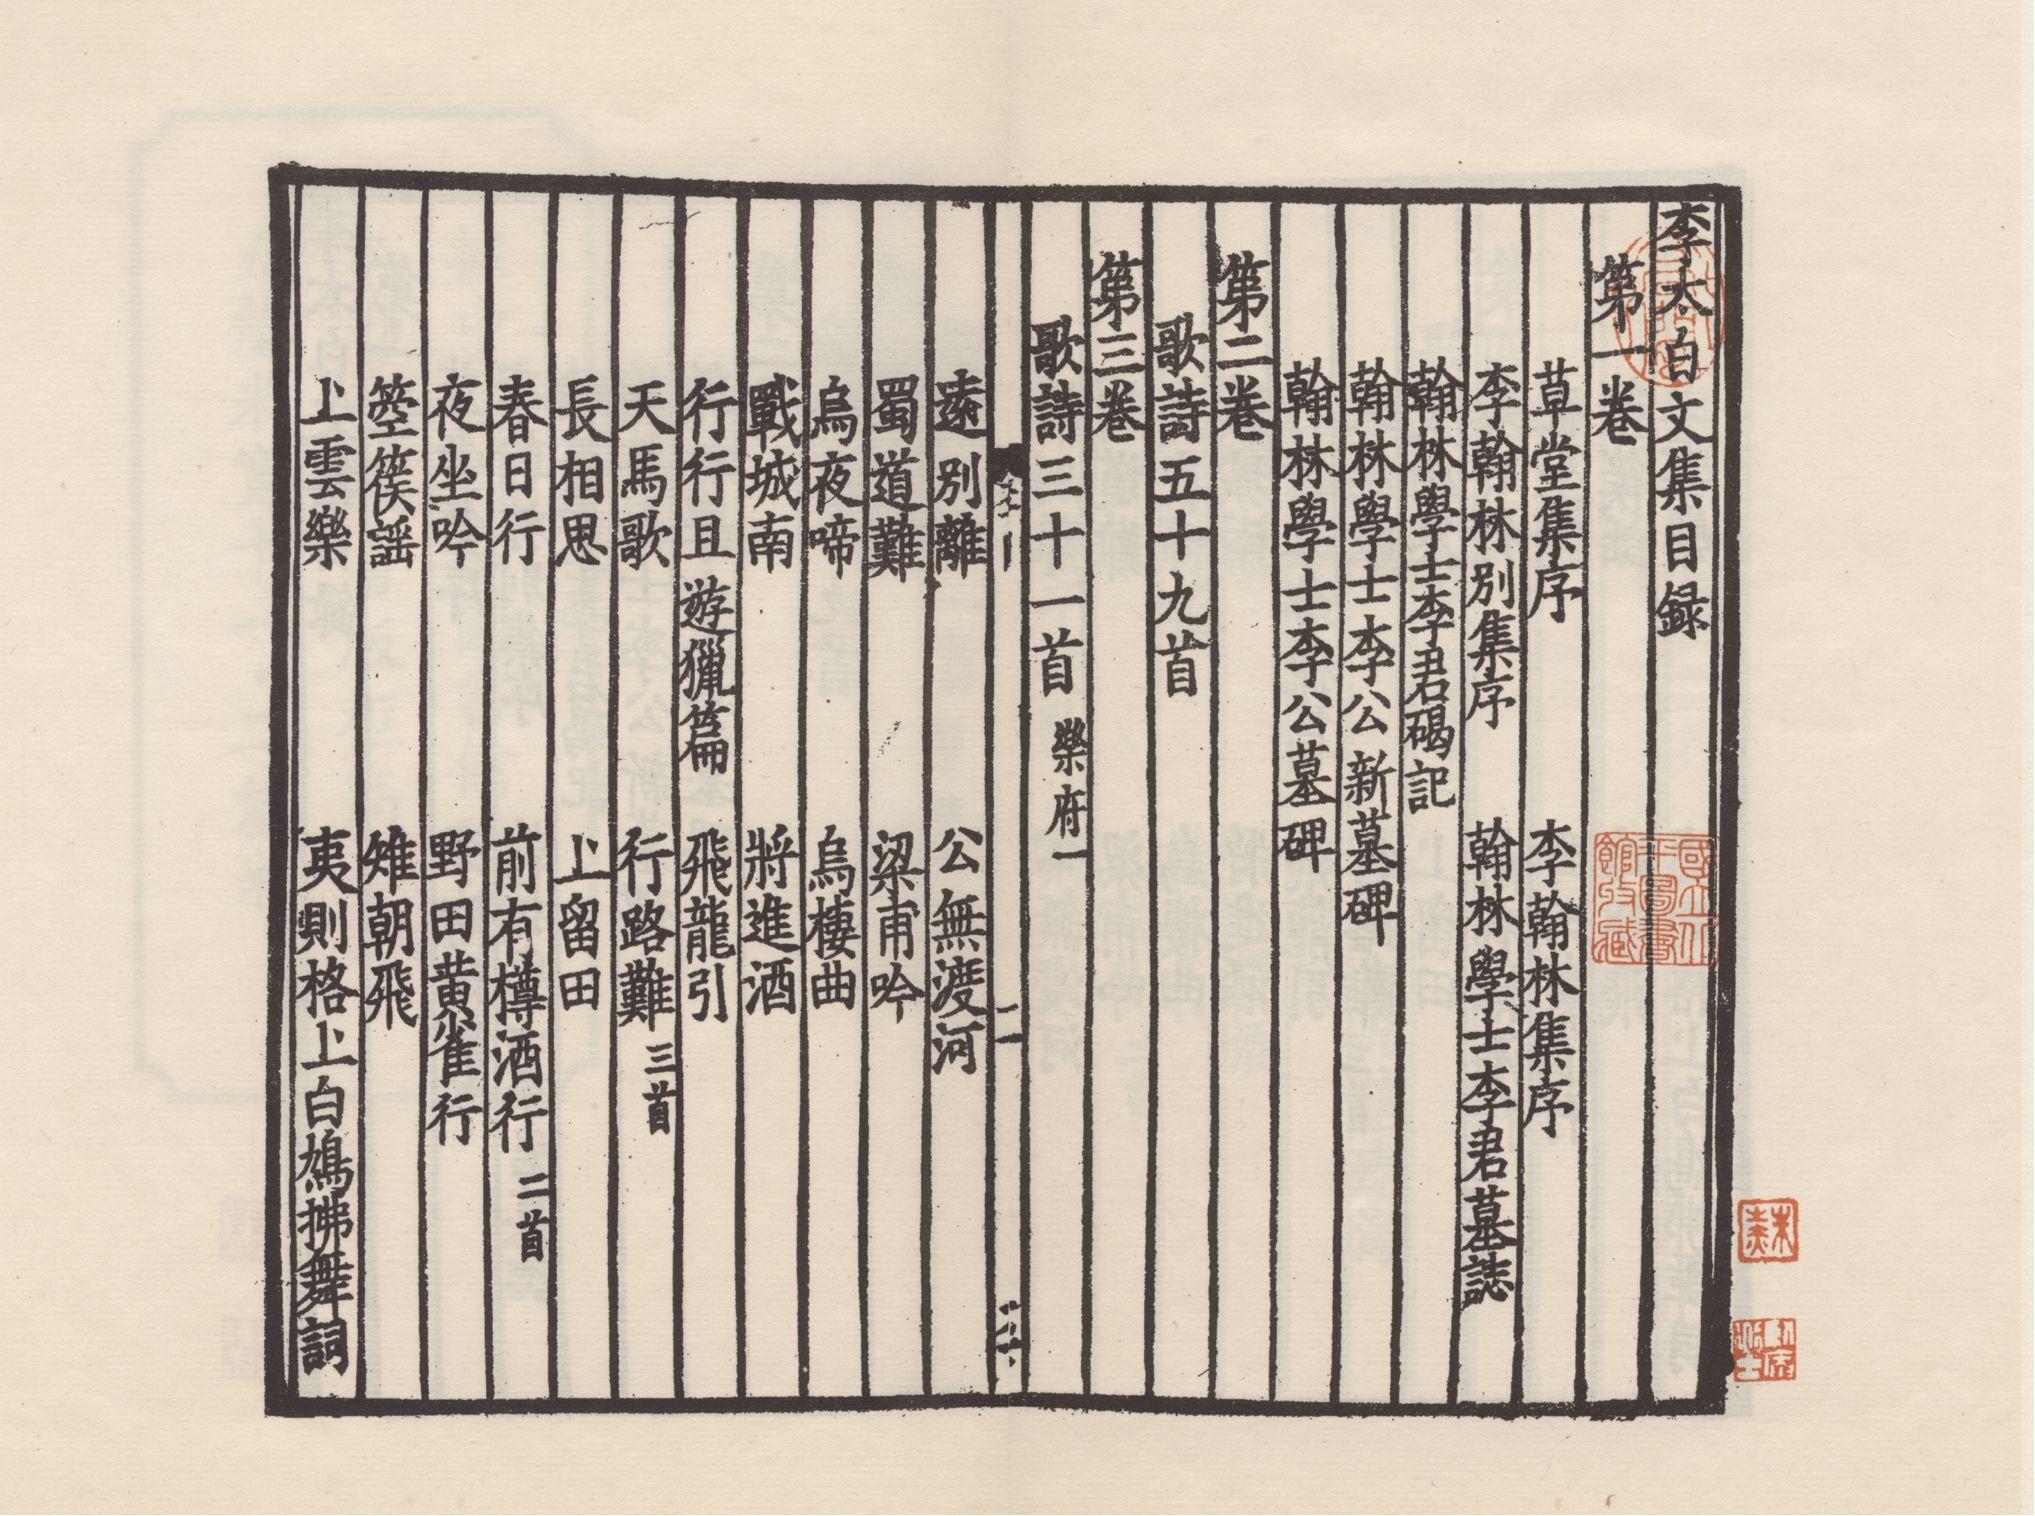 李太白文集目録
第一卷
草堂集序 李翰林集序
李翰林別集序 翰林學士李君墓誌
翰林學士李君碣記
翰林學士李公新墓碑
翰林學士李公墓碑
第二卷
歌詩五十九首
第三卷
歌詩三十一首 樂府一
遠別離 公無渡河
蜀道難 梁甫吟
烏夜啼 烏棲曲
戰城南 將進酒
行行且遊獵篇 飛龍引
天馬歌 行路難 三首
長相思 上留田
春日行 前有樽酒行 二首
夜坐吟 野田黄雀行
箜篌謡 雉朝飛
上雲樂 夷則格上白鳩拂舞詞